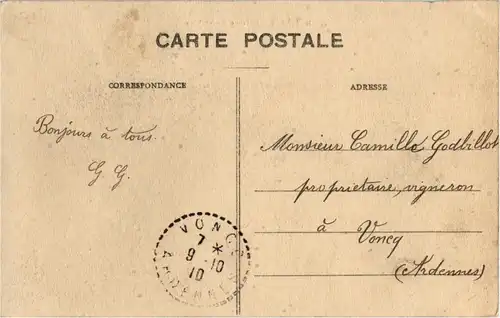 CARTE POSTALE
CORRESPONDANCE
ADRESSE
Bonjours à tous.
G. G.
Monsieur Camille Godbillot
propriétaire, vigneron
à Voncq
(Ardennes)
VONCQ
7 *
9 - 10
10
ARDENNES